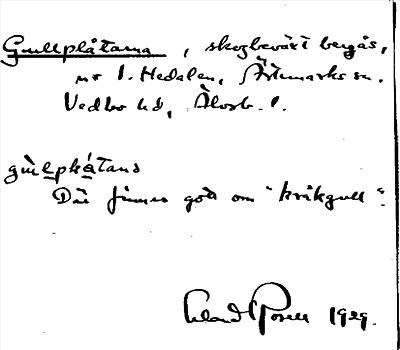 Gullplåtarna, skogbeväxt bergås,
nr 1. Hedalen, Ärtemarks sn.
Vedbo hd, Älvsb. l.
gu̇llplåtana
Där finnes gott om "kråkgull".
Erland Rosell 1929.